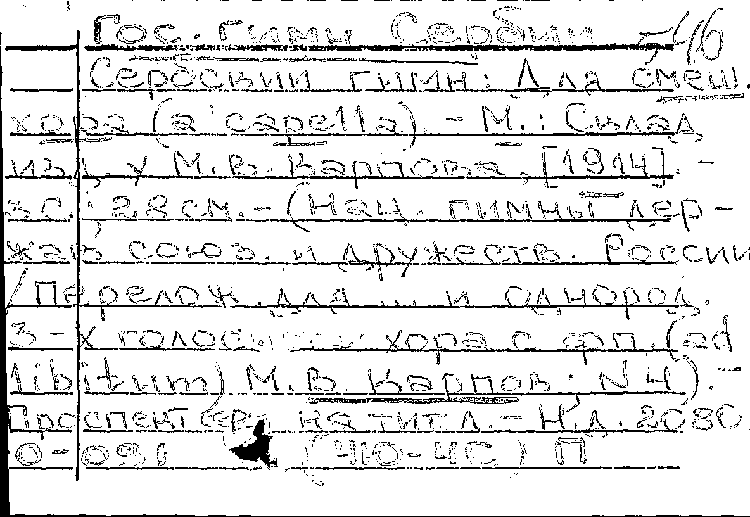 Гос. гимн Сербии
Сербский гимн: Для смеш.
хора (a'capella). - М.: Склад
изд. у М.В. Карпова, [1914]. -
3 с.; 28 см. - (Нац. гимны дер-
жав союз. и дружеств. России
/Перелож. для ... и однород.
3-х голосн. хора с фп. (ad
libitum) М.В. Карпов; N 4). -
Проспект сер. на тит. л. - Н.д. 2080.
0-09 (ЧЮ-ЧС) П